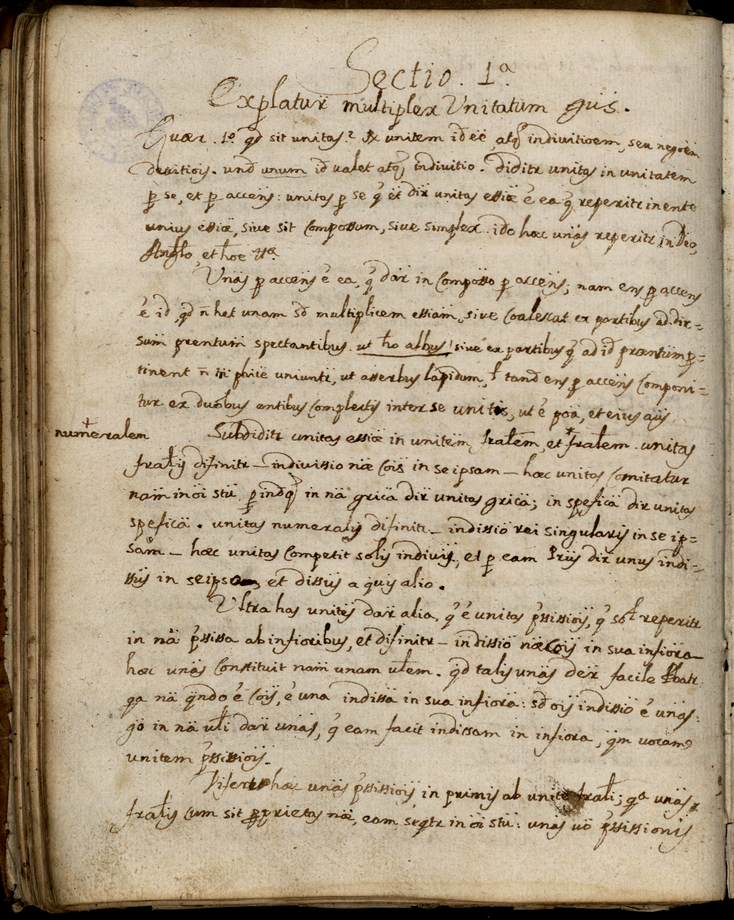 Sectio. 1ª.
Explatur multiplex Unitatum gũs.
Quær. 1º. qd sit unitas? R. unitem id eẽ atq indivitioem, seu negoem
devitiois. und unum id valet atq indivitio. diditr unitas in unitatem
p se, et p accens: unitas p se q et dir unitas essiæ ẽ ea q reperitr in ente
unius essiæ, sive sit compossum, sive simplex. ido hæc unas reperitr in Deo,
Anglo et hoc
Unas p accens ẽ ea, q dar in composso p accens; nam ens p accens
ẽ id qd ñ het unam sd multiplicem essiam, sive coalescat ex partibus ad dir=
sum gentum spectantibus. ut ho albus! sive ex partibus q ad id prænium p=
tinent ñ tn phice uniuntr, ut aserbus lapidum, tand ens p accens componi=
tur ex duobus entibus complectis inter se unitis, ut ẽ
numeralem
Subdiditr unitas essiæ in unitem fralem, et fralem. unitas
fralis difinitr _ indivissio næ cois in se ipsam _ hæc unitas comitatur
nam in oi stu. p indq in na grica dir unitas grica; in spefica dir unitas
spefica. unitas numeralis difinitr _ indissio rei singularis in se ip=
sam _ hæc unitas competit solis indivis, et p eam dir unus indi=
ssus in seipso, et dissus a quis alio.
Ultra has unites dar alia, q ẽ unitas pssissiois, q solt reperitr
in na pssissa ab infioribus, et difinitr _ indissio næ cois in sua infiora _
hæc unas constituit nam unam ulem. qd talis unas der facile pbatr
qa na qndo ẽ cois, ẽ una indissa in sua infiora: sd ois indissio ẽ unas:
go in na uli dar unas, q eam facit indissam in infiora, qm vocamo
unitem pssissiois.
hæc unas pssissiois in primis ab unite frali; qa unas
fralis cum sit pprietas næ, eam seqtr in oi stu: unas vo pssissionis